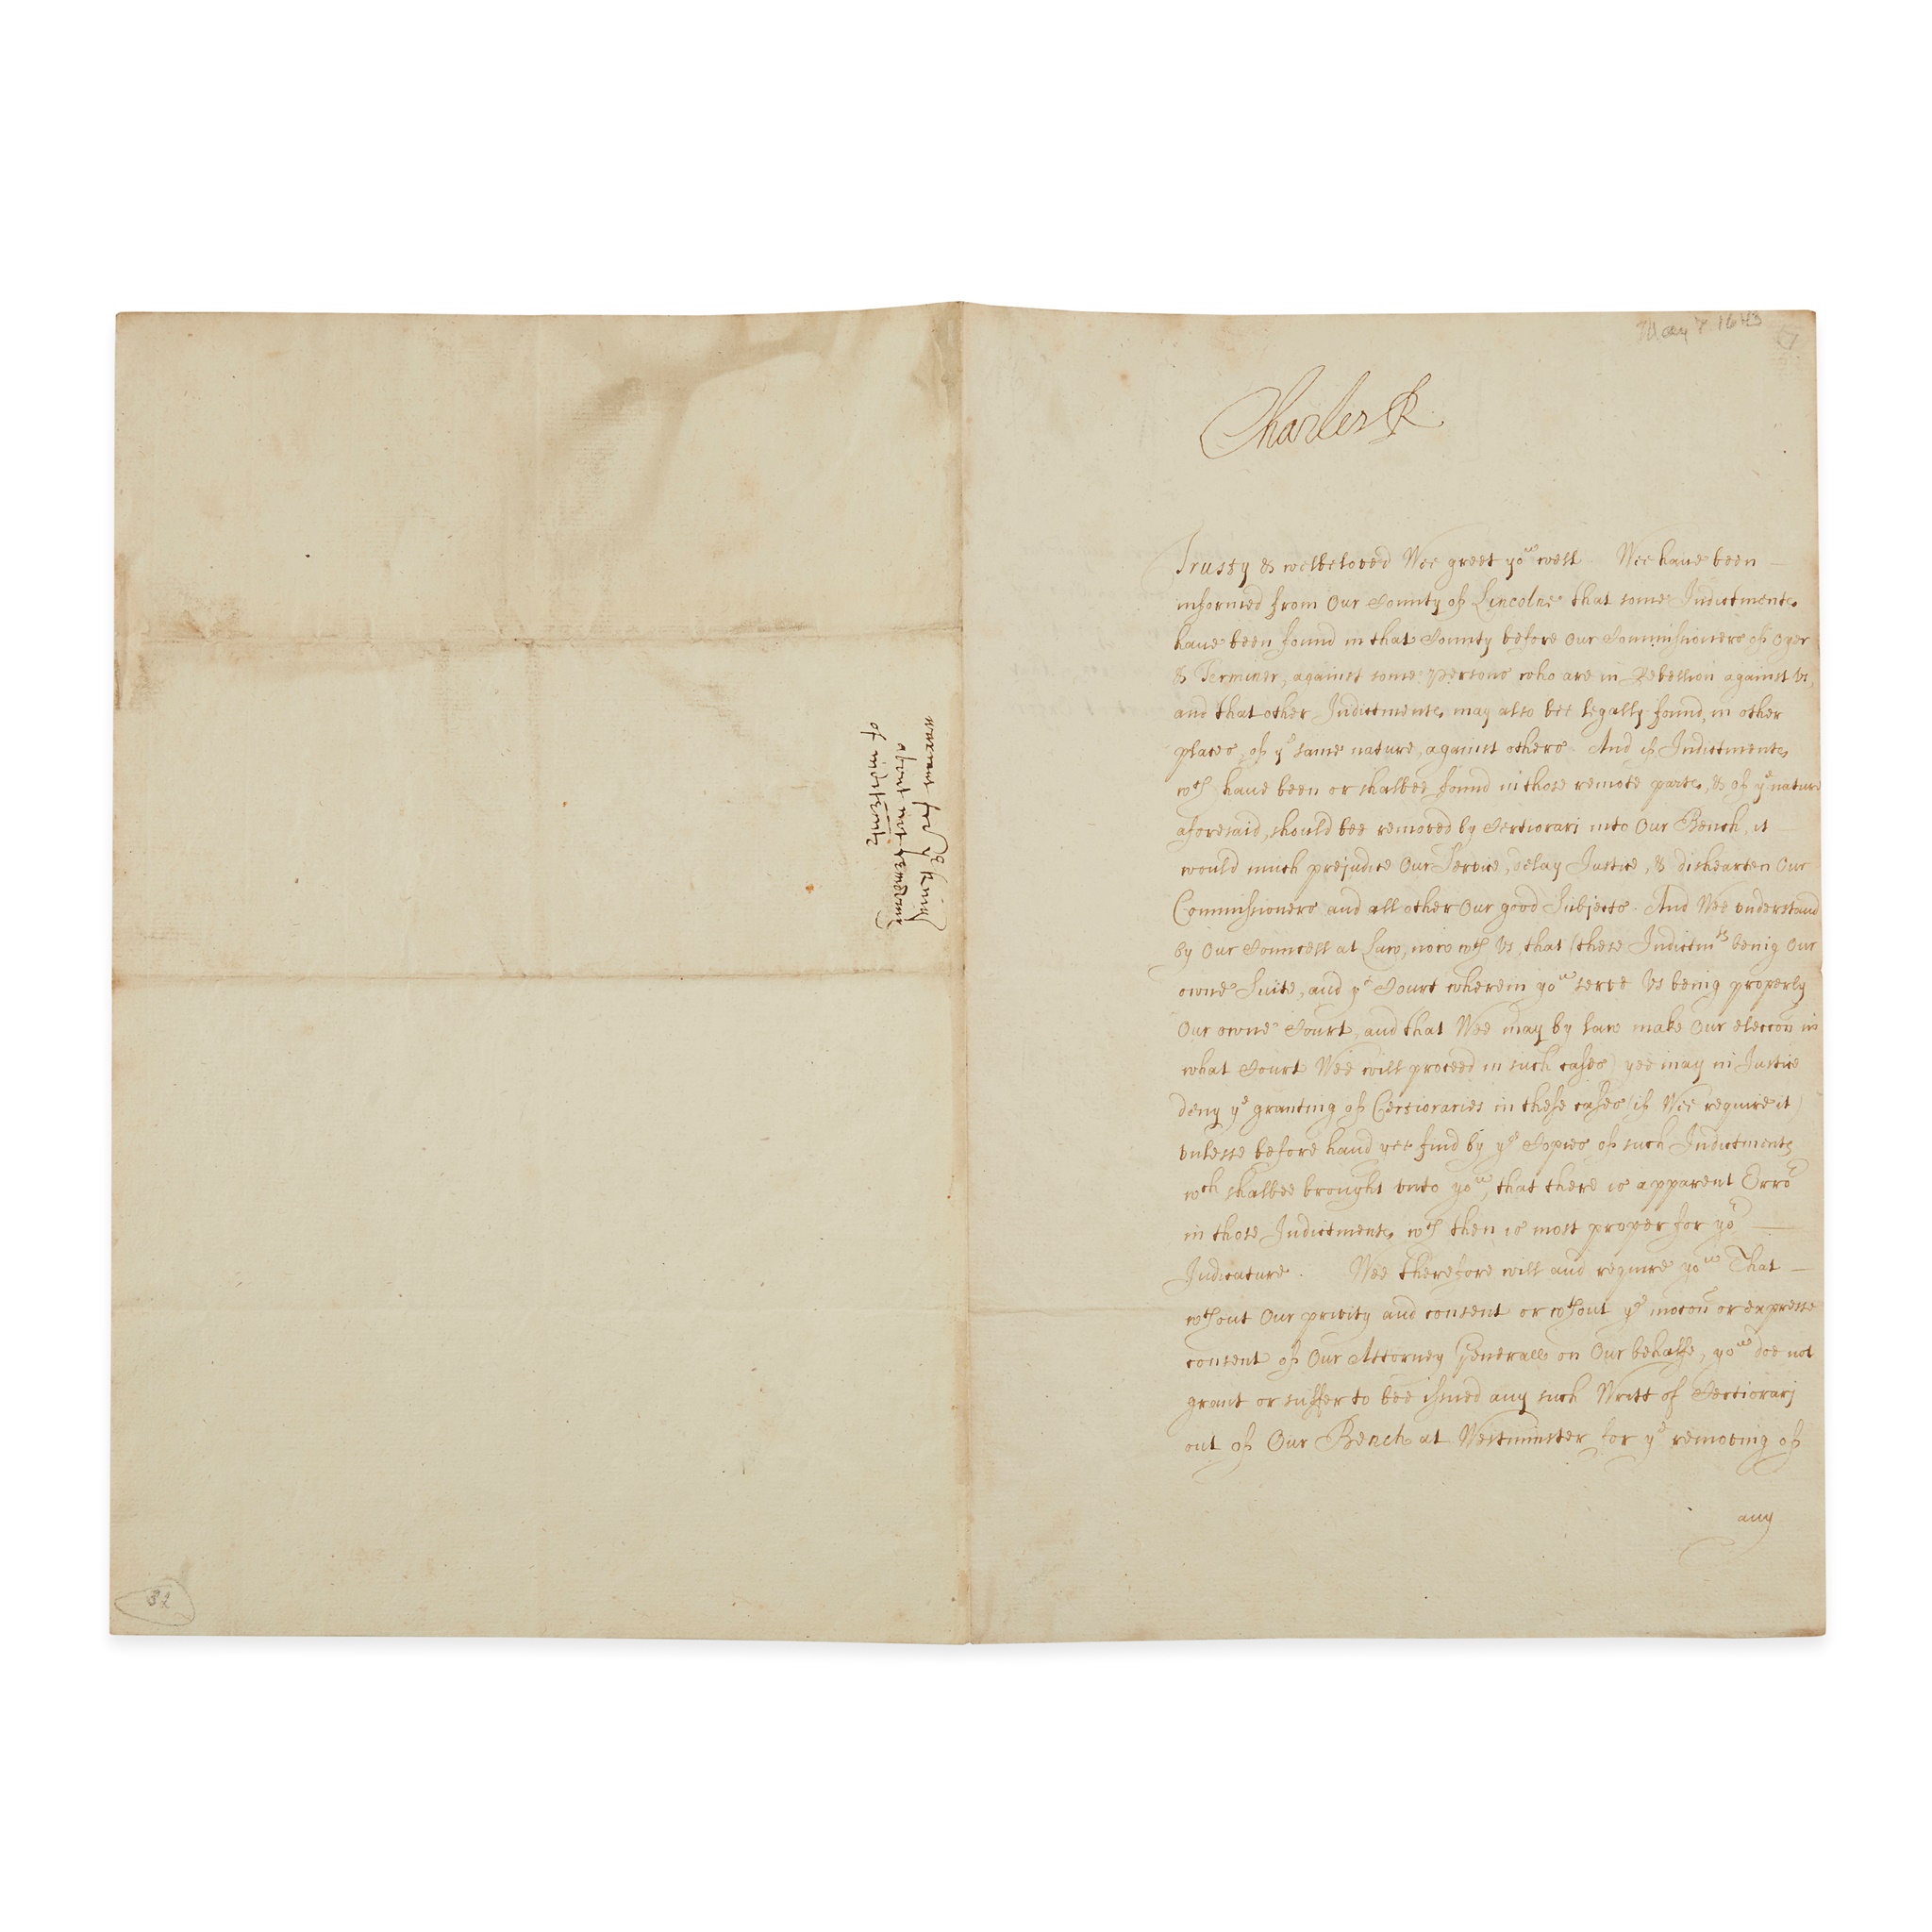 May 7 1643
Charles R
Trusty & welbeloved Wee greet yoᵘ well. Wee have been
informed from Our County of Lincolne that some Indictments
have been found in that County before Our Commissioners of Oyer
& Terminer, against some persons who are in Rebellion against Us,
and that other Indictments may also bee legally found, in other
places, of yᵉ same nature, against others. And if Indictments,
wᶜʰ have been or shalbee found in those remote parts, & of yᵉ nature
aforesaid, should bee removed by Certiorari into Our Bench, it
would much prejudice Our Service, delay Justice, & dishearten Our
Commissioners and all other Our good Subjects. And Wee understand
by Our Councell at Law, now wᵗʰ Us, that (these Indictmᵗˢ being Our
owne Suite, and yᵉ Court wherein yoᵘ serve Us being properly
Our owne Court, and that Wee may by law make Our eleccon in
what Court Wee will proceed in such cases) yee may in Justice
deny yᵉ granting of Certioraries in these cases (if Wee require it)
unlesse before hand yee find by yᵉ Copies of such Indictments
wᶜʰ shalbee brought unto yoᵘ, that there is apparent Erroʳ
in those Indictments, wᶜʰ then is most proper for yoʳ
Judicature. Wee therefore will and require yoᵘ That
wᵗʰout Our privity and consent or wᵗʰout yᵉ mocon or expresse
consent of Our Attorney Generall on Our behalfe, yoᵘ doe not
grant or suffer to bee issued any such Writt of Certiorari
out of Our Bench at Westminster for yᵉ removing of
any
warrant for yᵉ King
about not removing
of indictmᵗˢ
32